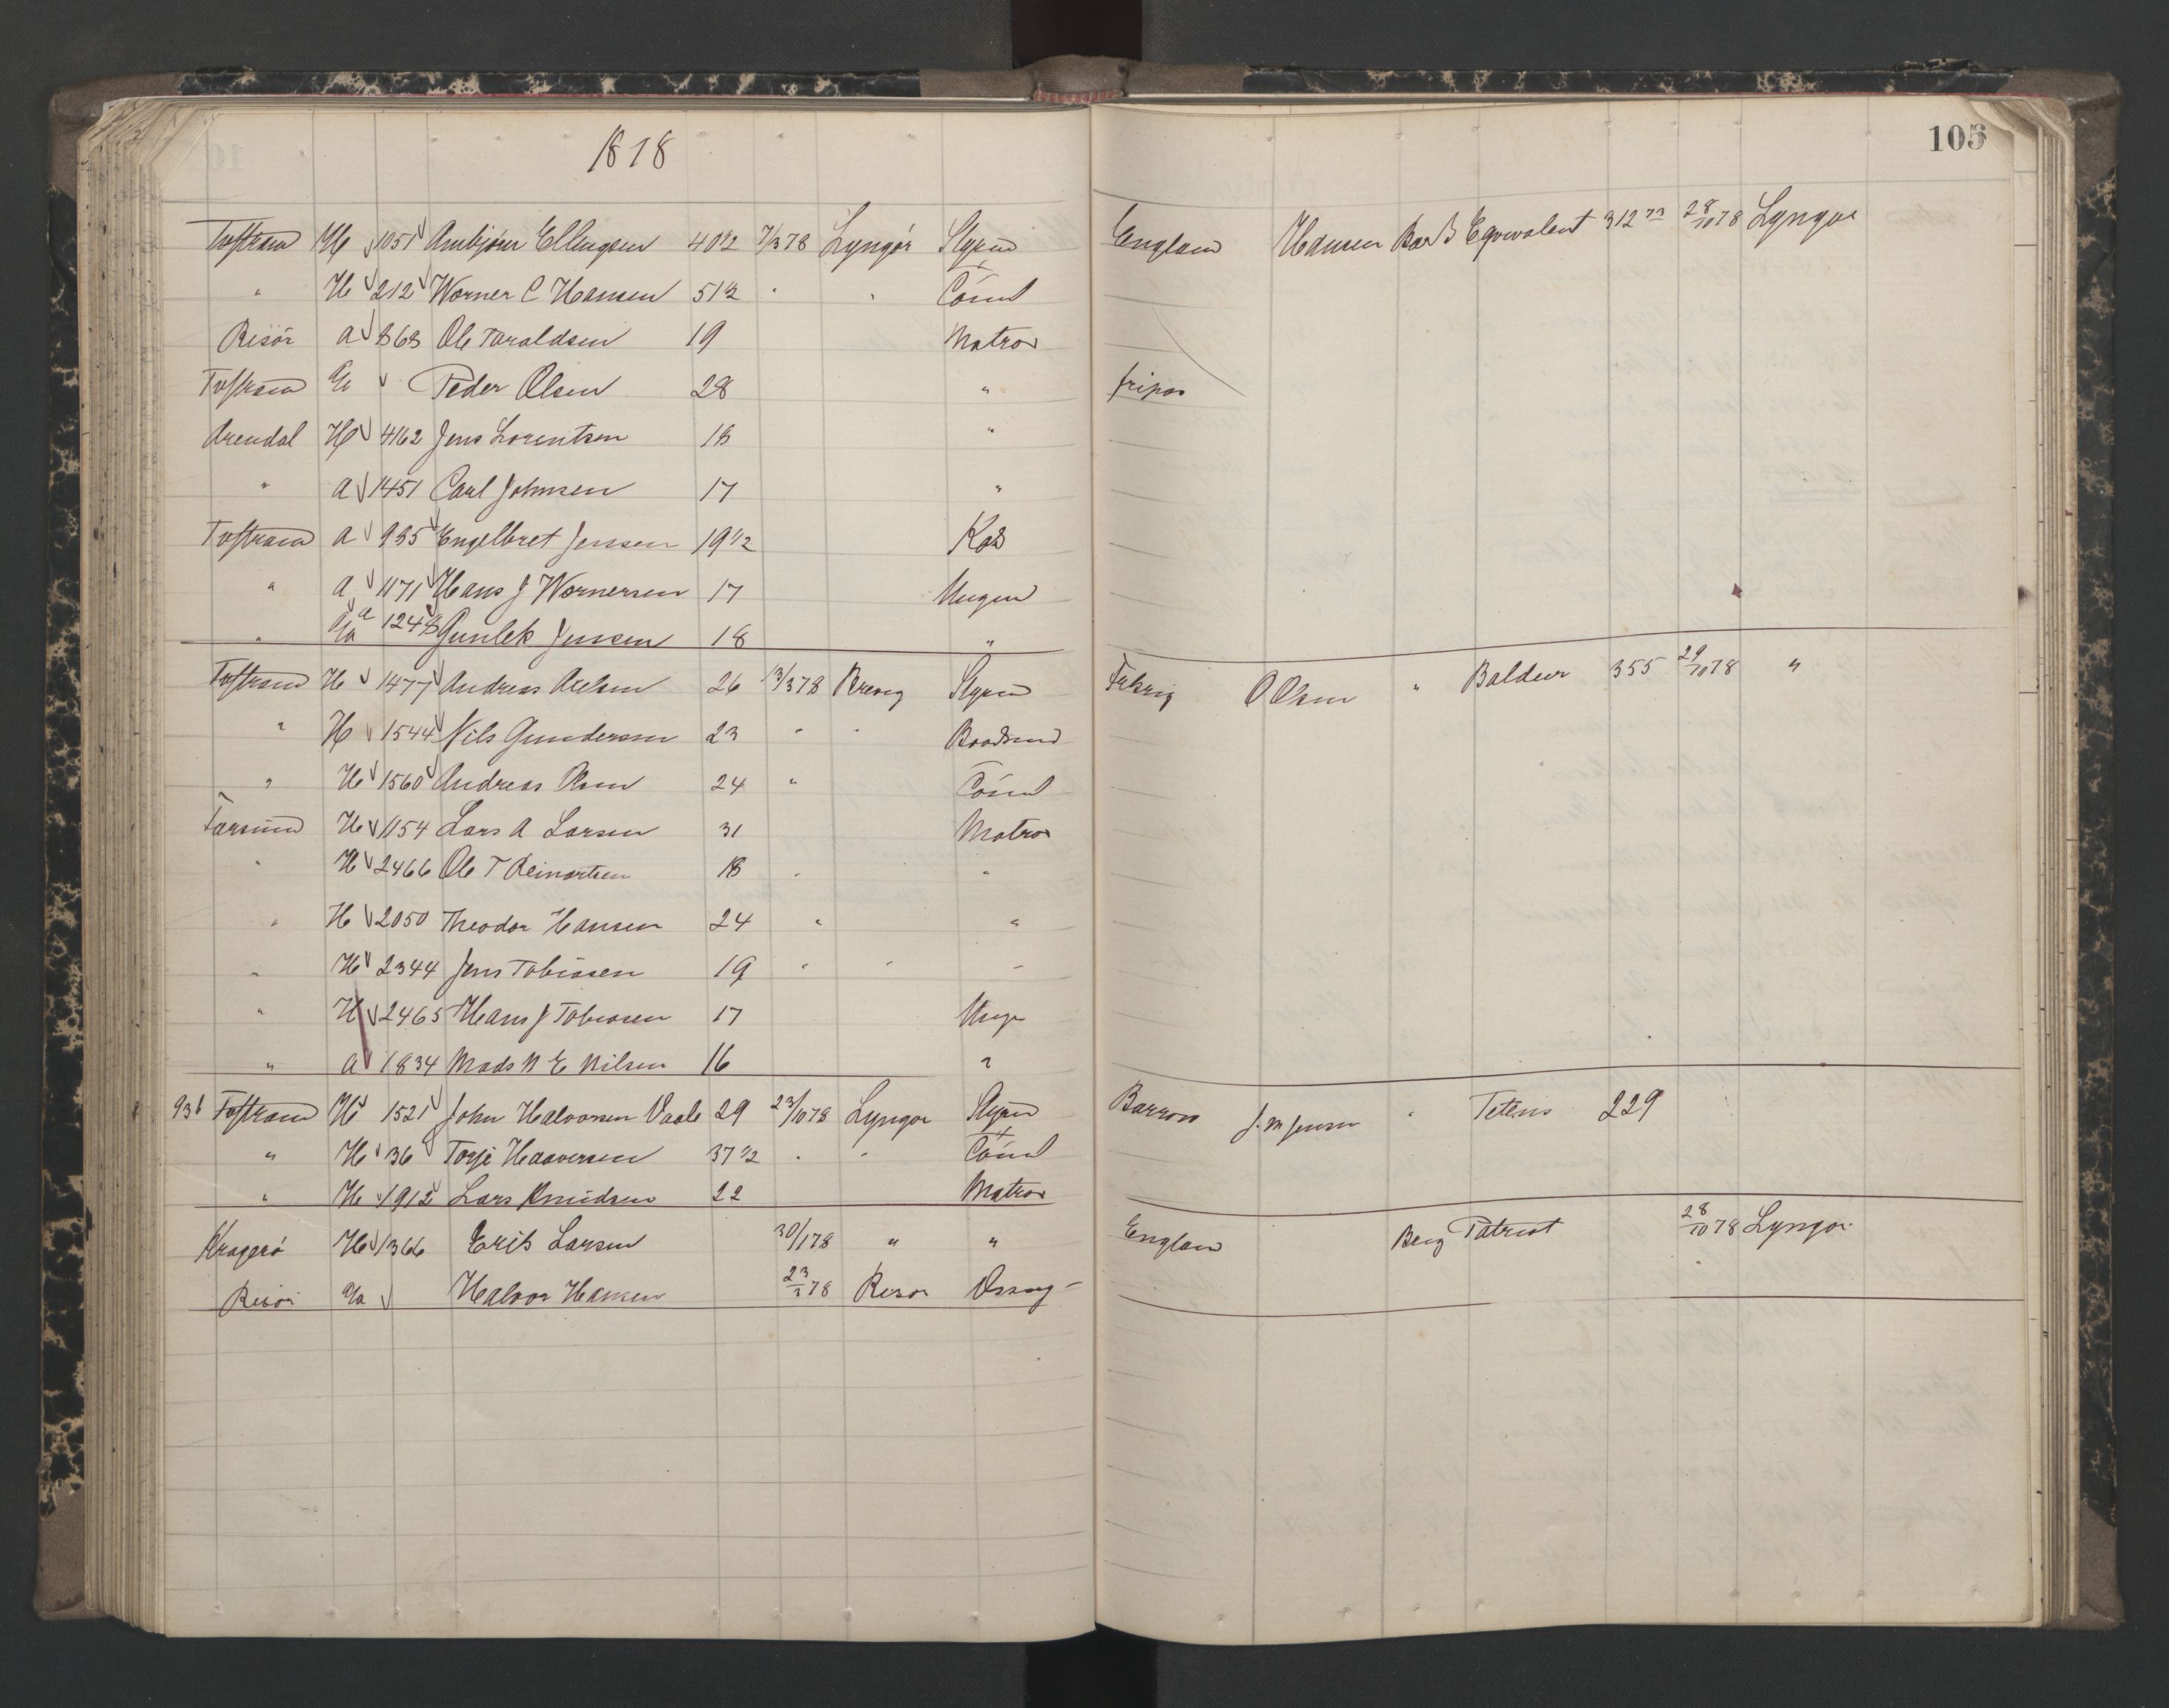 1878
105
Tvstrand H 1051 Anbjørn Ellingsen 40 1/2 7/3 78 Lyngör Styrmd England Hansen Bark Eqvivalent 312 73 28/10 78 Lyngör
" H 212 Worner C Hansen 51 1/2 " " Tömd
Risör a 868 Ole Taraldsen 19 Matros
Tvstrand Peder Olsen 28 " fripas
Arendal H 4162 Jens Lorentsen 18 "
" a 1451 Carl Johnsen 17 "
Tvstrand a 935 Engelbret Jensen 19 1/2 Kok
" a 1171 Hans J Wornersen 17 Ungmd
" a 1248 Gunlek Jensen 18 "
Tvstrand H 1477 Andreas Axelsen 26 13/3 78 Brevig Styrmd O Olsen " Baldur 355 29/10 78 "
" H 1544 Nils Gundersen 23 " " Baadsmd
" H 1560 Andreas Olsen 24 " Tömd
Farsund H 1154 Lars A Larsen 31 Matros
" H 2466 Ole T Reinartsen 18 " "
" H 2050 Theodor Hansen 24 " "
" H 2344 Jens Tobiasen 19 " " "
" H 2465 Hans J Tobiasen 17 Ungm
" a 1834 Mads N E Nilsen 16 "
936 Tvstrand H 1521 John Halvorsen Vaale 29 23/10 78 Lyngör Styrmd Barrow J. M Jensen " Tetens 229
" H 36 Torje Haaversen 37 1/2 " " Tömd
" H 1912 Lars Knudsen 22 Matros
Kragerö H 1366 Erik Larsen 30/1 78 " " England Berg Patriot 28/10 78 Lyngör
Risör Halvor Hansen 23/3 78 Risör